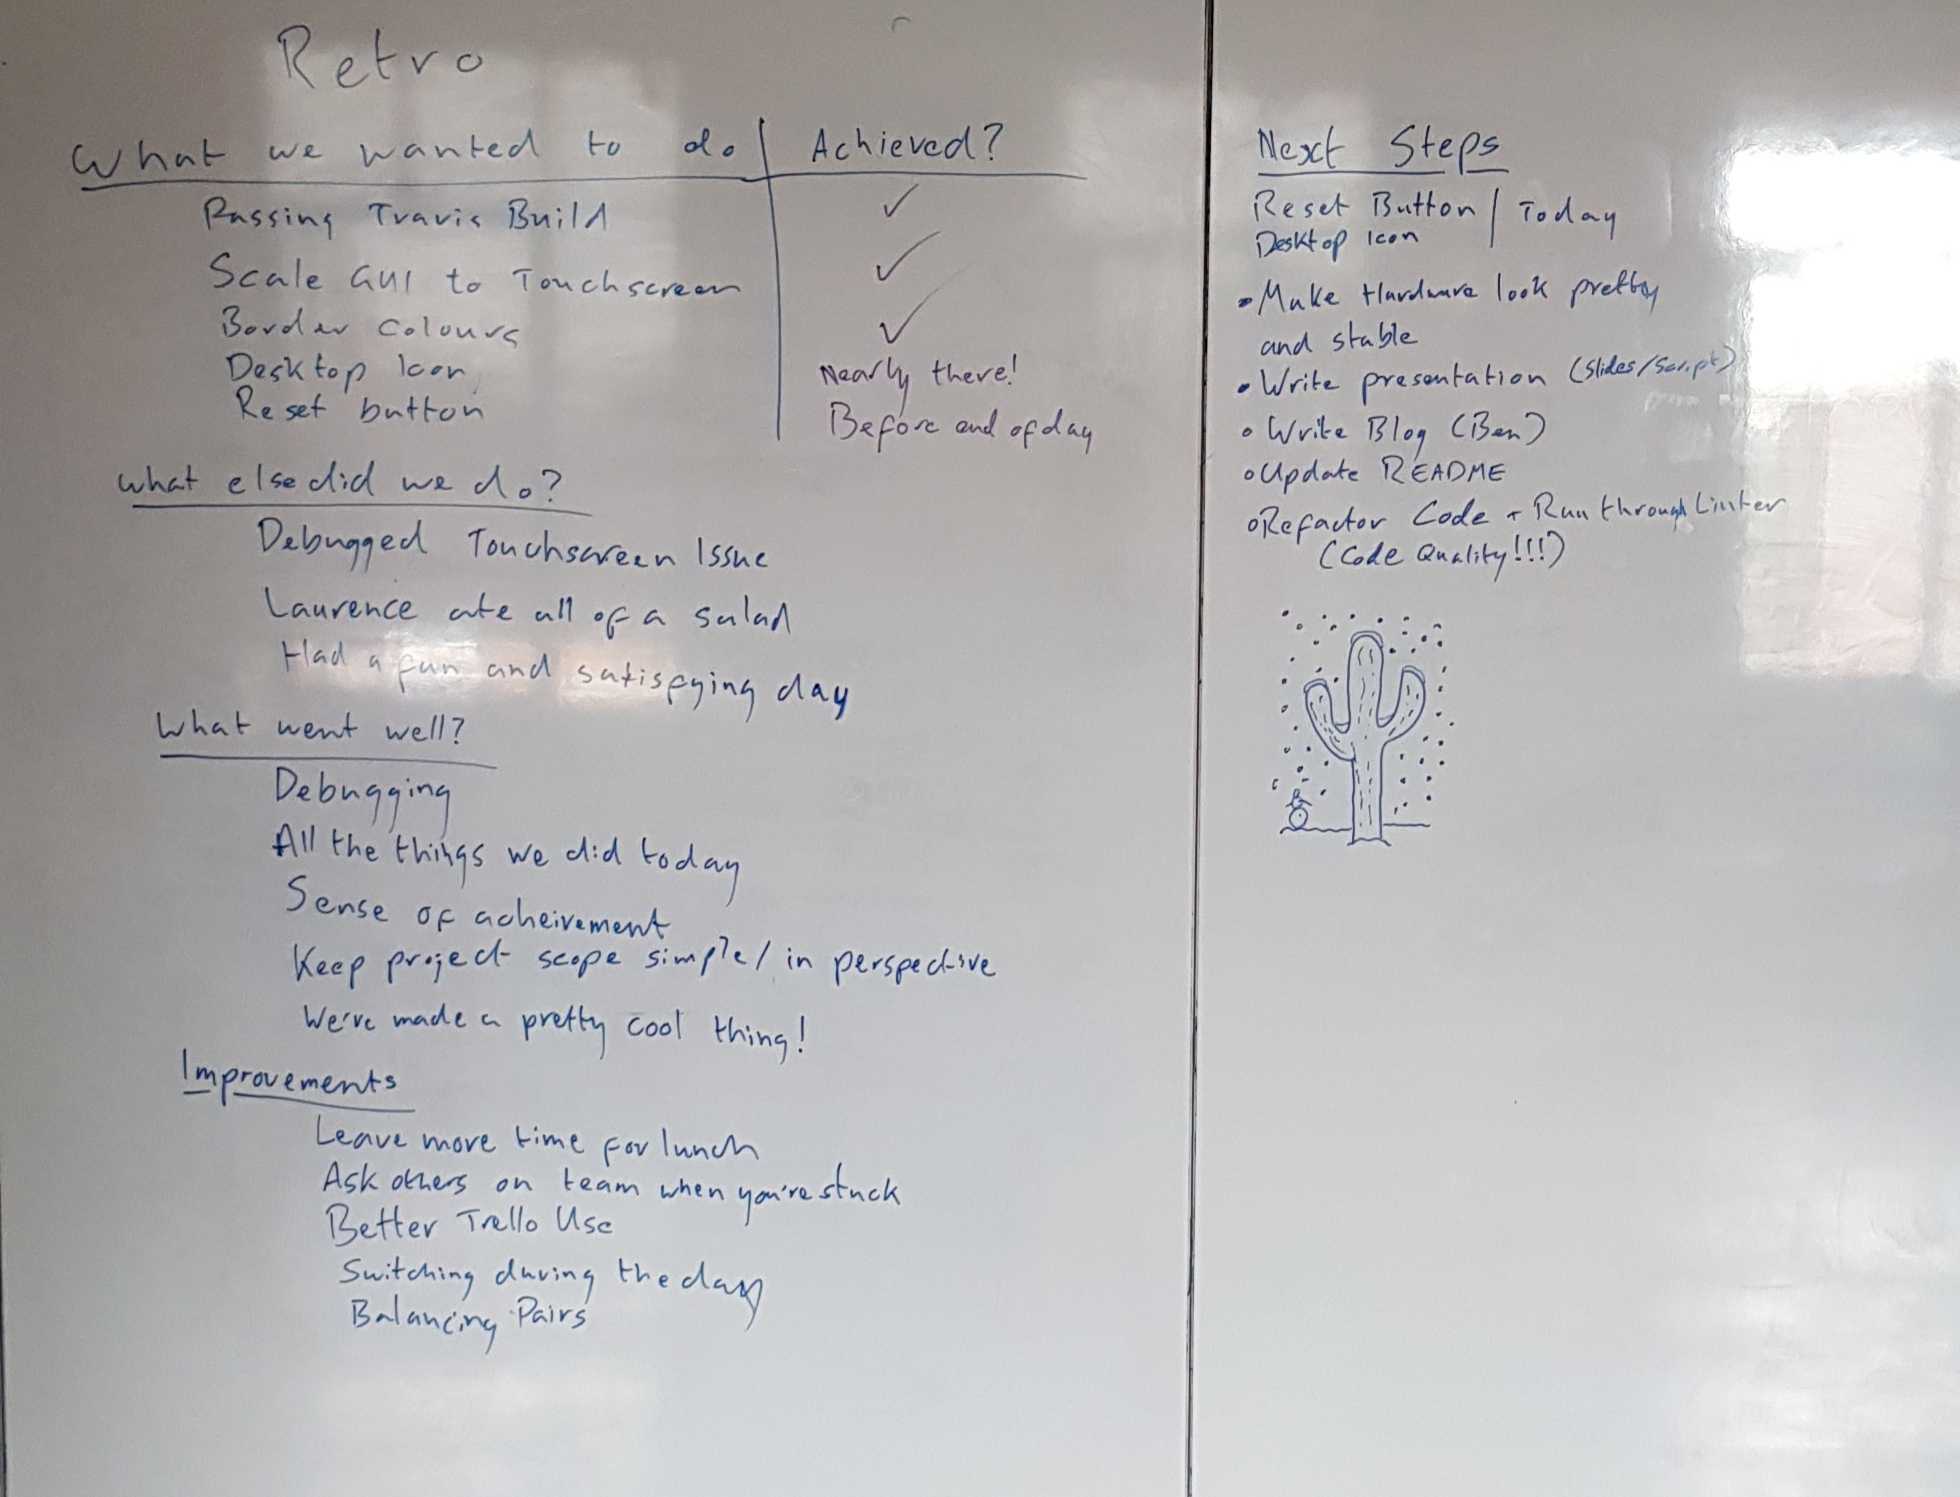 Retro
What we wanted to do | Achieved?
Passing Travis Build ✓
Scale GUI to Touchscreen ✓
Border Colours ✓
Desktop Icon Nearly there!
Reset button Before end of day
What else did we do?
Debugged Touchscreen Issue
Laurence ate all of a salad
Had a fun and satisfying day
What went well?
Debugging
All the things we did today
Sense of acheivement
Keep project scope simple / in perspective
We've made a pretty cool thing!
Improvements
Leave more time for lunch
Ask others on team when you're stuck
Better Trello Use
Switching during the day
Balancing Pairs
Next Steps
Reset Button | Today
Desktop Icon
• Make Hardware look pretty
and stable
• Write presentation (Slides/Script)
• Write Blog (Ben)
• Update README
• Refactor Code + Run through Linter
(Code Quality!!!)